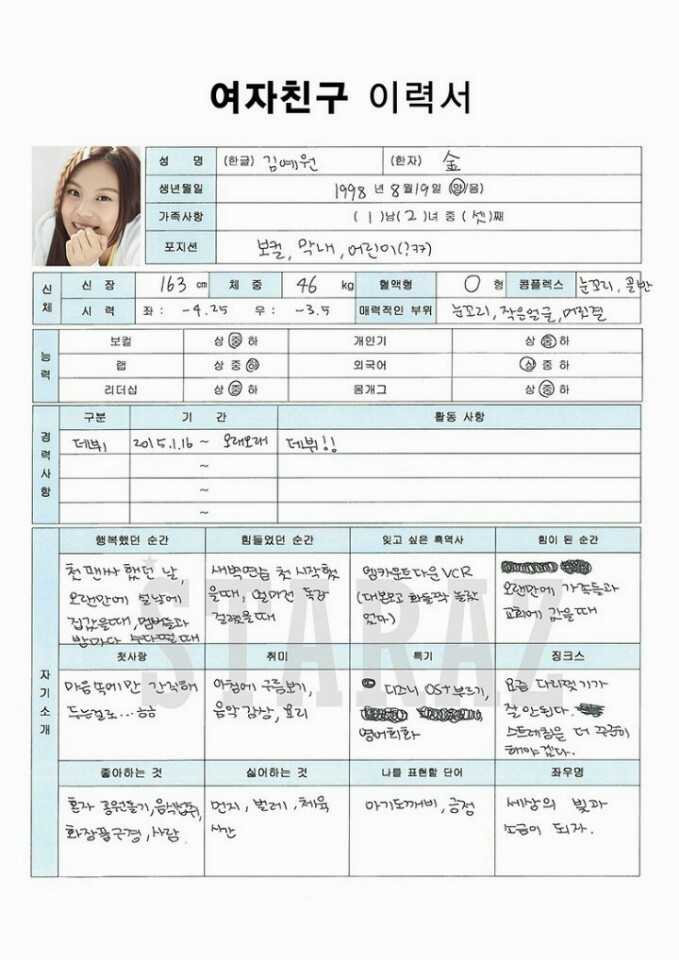 여자친구 이력서
성 명 (한글) 김예원 (한자) 金
생년월일 1998 년 8 월 19 일 (양/음)
가족사항 ( 1 )남( 2 )녀 중 ( 셋 )째
포지션 보컬, 막내, 어린이(?ㅋㅋ)
신체
신 장 163 cm 체 중 46 kg 혈액형 O 형 콤플렉스 눈꼬리, 골반
시 력 좌 : -4.25 우 : -3.5 매력적인 부위 눈꼬리, 작은얼굴, 머릿결
능력
보컬 상 중 하 개인기 상 중 하
랩 상 중 하 외국어 상 중 하
리더십 상 중 하 몸개그 상 중 하
경력사항
구분 기 간 활동 사항
데뷔 2015.1.16 ~ 오래오래 데뷔!!
~
~
~
자기소개
행복했던 순간 힘들었던 순간 잊고 싶은 흑역사 힘이 된 순간
첫 팬싸 했던 날,
오랜만에 설날에
집갔을때, 멤버들과
밤마다 수다떨때
새벽연습 첫 시작했
을때, 독감
걸렸을때
엠카운트다운 VCR
(대본보고 화들짝 놀랐
었다)
오랜만에 가족들과
교회에 갔을때
첫사랑 취미 특기 징크스
마음 속에만 간직해
두는걸로...ㅎㅎ
아침에 구름보기,
음악감상, 요리
디즈니 OST 부르기,
영어회화
요즘 다리찢기가
잘 안된다.
스트레칭을 더 꾸준히
해야겠다.
좋아하는 것 싫어하는 것 나를 표현할 단어 좌우명
혼자 응원놀기, 음식섭취,
화장품구경, 사람
먼지, 벌레, 체육
시간
아기도깨비, 긍정
세상의 빛과
소금이 되자.
STARAZ